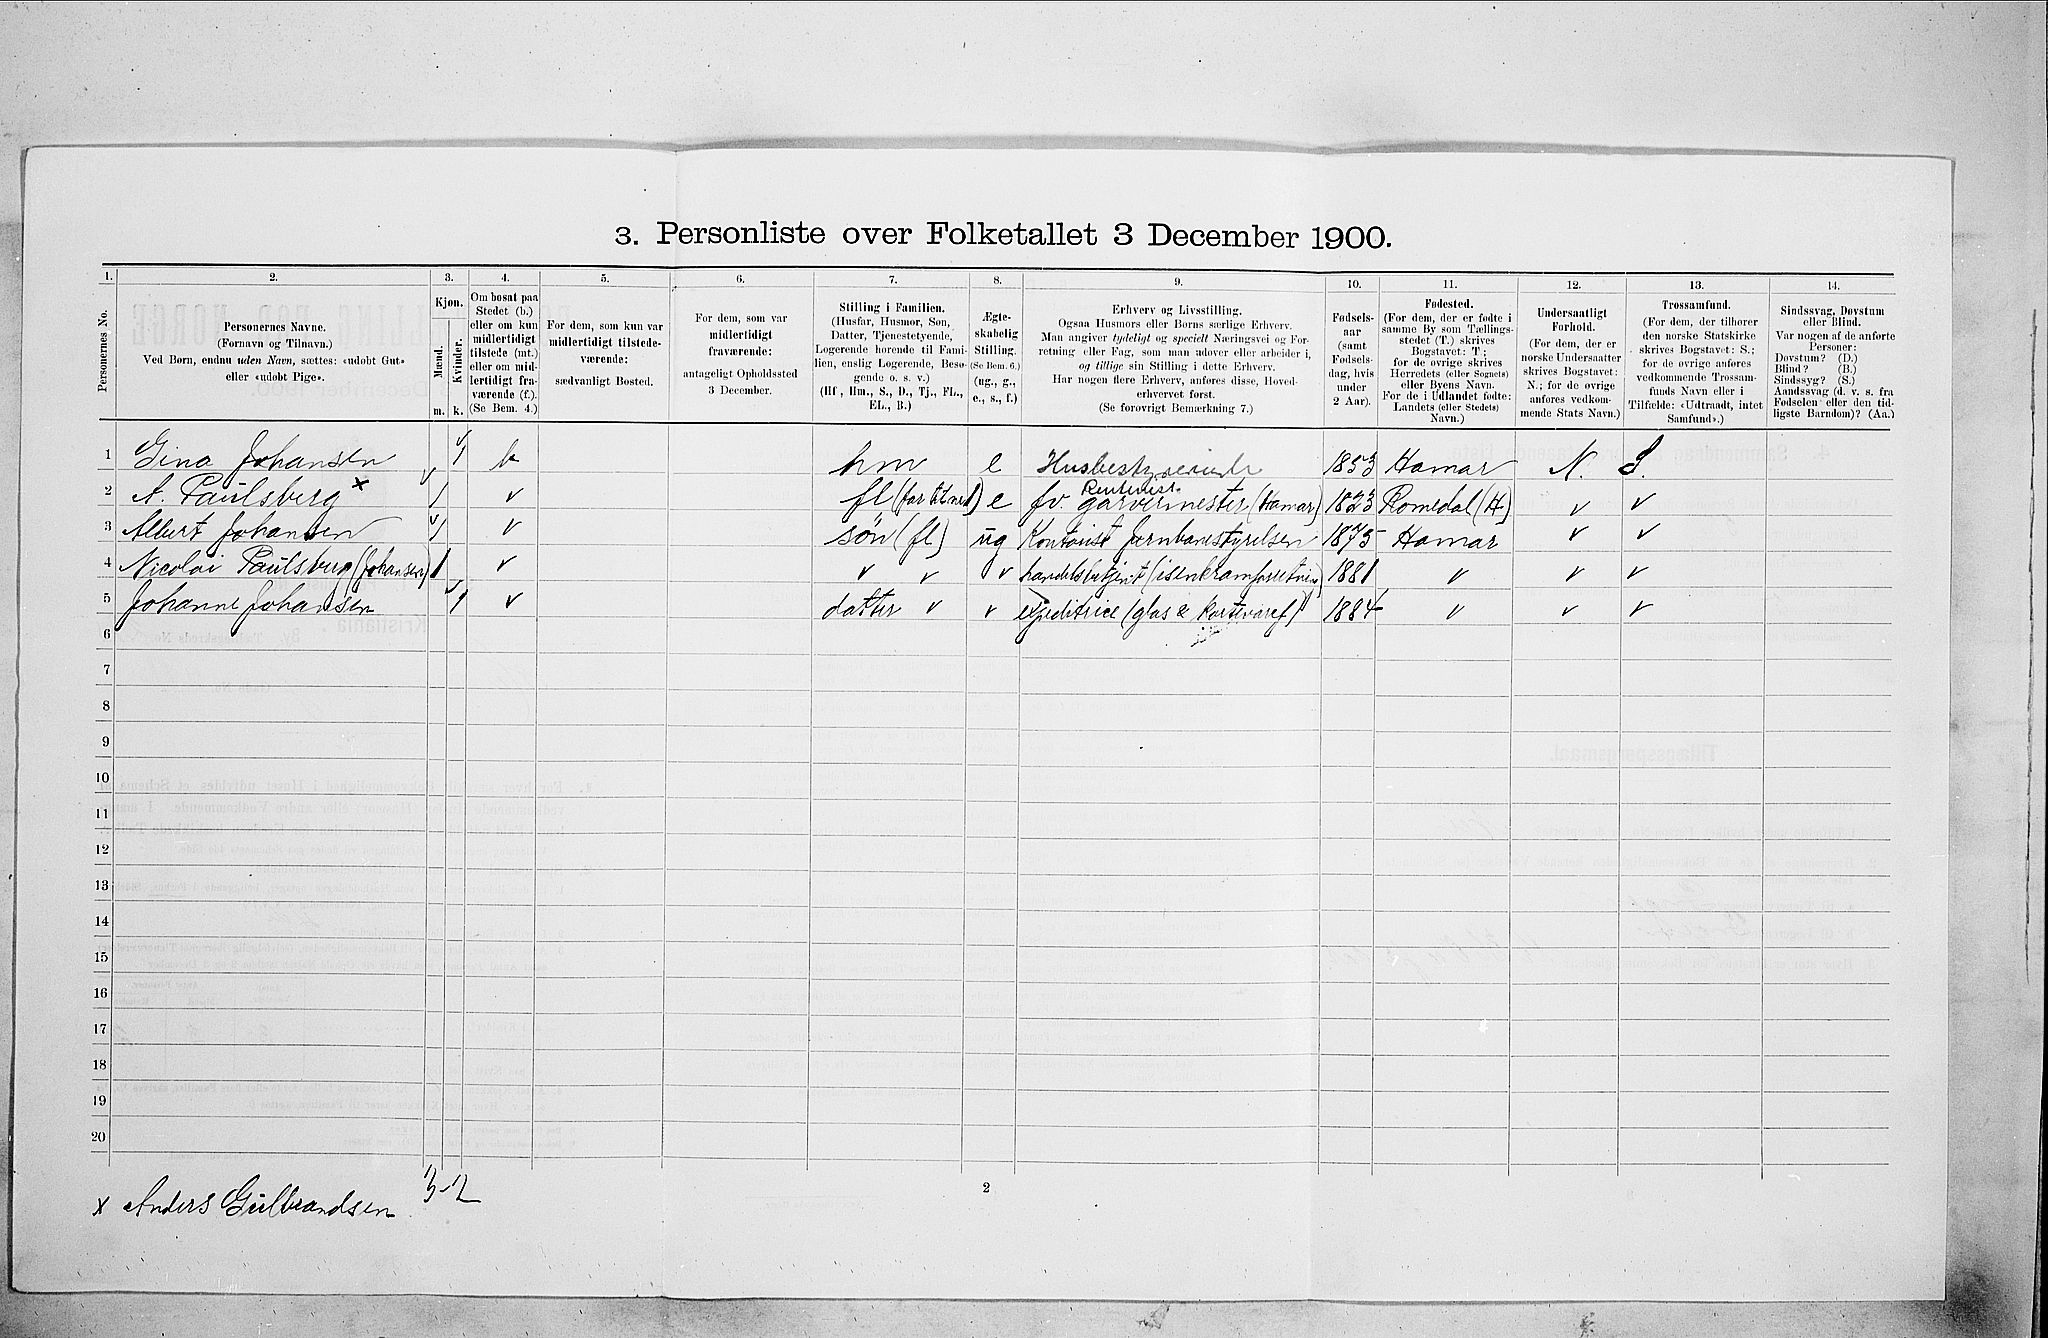 3. Personliste over Folketallet 3 December 1900.
1. 2. 3. 4. 5. 6. 7. 8. 9. 10. 11. 12. 13. 14.
Personernes No.
Personernes Navne.
(Fornavn og Tilnavn.)
Ved Børn, endnu uden Navn, sættes: «udøbt Gut»
eller «udøbt Pige».
Kjøn.
Mænd. Kvinder.
m. k.
Om bosat paa
Stedet (b.)
eller om kun
midlertidigt
tilstede (mt.)
eller om mid-
lertidigt fra-
værende (f.).
(Se Bem. 4.)
For dem, som kun var
midlertidigt tilstede-
værende:
sædvanligt Bosted.
For dem, som var
midlertidigt
fraværende:
antageligt Opholdssted
3 December.
Stilling i Familien.
(Husfar, Husmor, Søn,
Datter, Tjenestetyende,
Logerende hørende til Fami-
lien, enslig Logerende, Besø-
gende o. s. v.)
(Hf, Hm., S., D., Tj., FL.,
EL., B.)
Ægte-
skabelig
Stilling.
(Se Bem. 6.)
(ug., g.,
e., s., f.)
Erhverv og Livsstilling.
Ogsaa Husmors eller Børns særlige Erhverv.
Man angiver tydeligt og specielt Næringsvei og For-
retning eller Fag, som man udøver eller arbeider i,
og tillige sin Stilling i dette Erhverv.
Har nogen flere Erhverv, anføres disse, Hoved-
erhvervet først.
(Se forøvrigt Bemærkning 7.)
Fødsels-
aar
(samt
Fødsels-
dag, hvis
under
2 Aar).
Fødested.
(For dem, der er fødte i
samme By som Tællings-
stedet (T.) skrives
Bogstavet: T;
for de øvrige skrives
Herredets (eller Sognets)
eller Byens Navn.
For de i Udlandet fødte:
Landets (eller Stedets)
Navn.)
Undersaatligt
Forhold.
(For dem, der er
norske Undersaatter
skrives Bogstavet:
N.; for de øvrige
anføres vedkom-
mende Stats Navn.)
Trossamfund.
(For dem, der tilhører
den norske Statskirke
skrives Bogstavet: S.;
for de øvrige anføres
vedkommende Trossam-
funds Navn eller i
Tilfælde: «Udtraadt, intet
Samfund».)
Sindssvag, Døvstum
eller Blind.
Var nogen af de anførte
Personer:
Døvstum? (D.)
Blind? (B.)
Sindssyg? (S.)
Aandssvag (d. v. s. fra
Fødselen eller den tid-
ligste Barndom)? (Aa.)
1 Gina Johansen 1 b hm e Husbestyrerinde 1853 Hamar N. S.
Rentenist
2 A. Paulsberg x 1 v fl e fv. garvermester (Hamar) 1823 Romedal (H) v v
3 Albert Johansen 1 v søn (fl) ug Kontorist Jernbanestyrelsen 1875 Hamar v v
4 Nicolai Paulsberg (Johansen) 1 v v v v handelsbetjent 1881 v v v
5 Johanne Johansen 1 v datter v v expeditrice (glas & 1884 v v v
6
7
8
9
10
11
12
13
14
15
16
17
18
19
20
x Anders Gulbrandsen 3-2
2